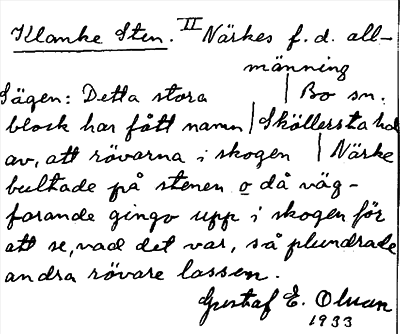 Klanke Sten. II Närkes f. d. all-
männing
Sägen: Detta stora | Bo sn.
block har fått namn | Sköllersta hd
av, att rövarna i skogen | Närke
bultade på stenen o då väg-
farande gingo upp i skogen för
att se, vad det var, så plundrade
andra rövare lassen.
Gustaf E. Olsson
1933